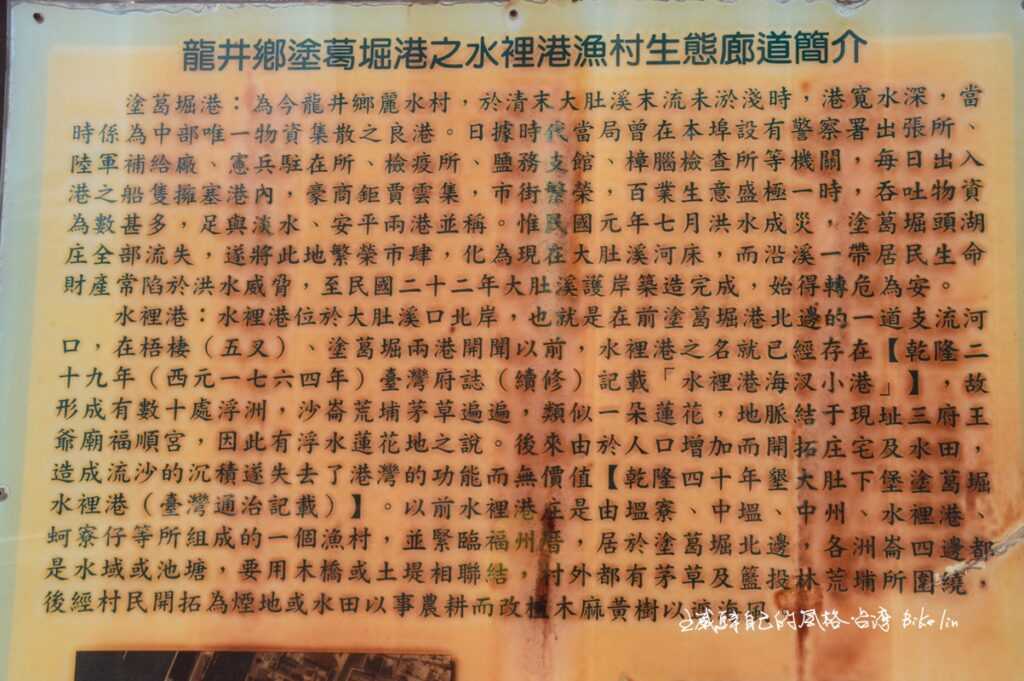 龍井鄉塗葛堀港之水裡港漁村生態廊道簡介
塗葛堀港：為今龍井鄉麗水村，於清末大肚溪末流未淤淺時，港寬水深，當
時係為中部唯一物資集散之良港。日據時代當局曾在本埠設有警察署出張所、
陸軍補給廠、憲兵駐在所、檢疫所、鹽務支館、樟腦檢查所等機關，每日出入
港之船隻擁塞港內，豪商鉅賈雲集，市街繁榮，百業生意盛極一時，吞吐物資
為數甚多，足與淡水、安平兩港並稱。惟民國元年七月洪水成災，塗葛堀頭湖
庄全部流失，遂將此地繁榮市肆，化為現在大肚溪河床，而沿溪一帶居民生命
財產常陷於洪水威脅，至民國二十二年大肚溪護岸築造完成，始得轉危為安。
水裡港：水裡港位於大肚溪口北岸，也就是在前塗葛堀港北邊的一道支流河
口，在梧棲（五叉）、塗葛堀兩港開闢以前，水裡港之名就已經存在【乾隆二
十九年（西元一七六四年）臺灣府誌（續修）記載「水裡港海汊小港」】，故
形成有數十處浮洲，沙崙荒埔茅草遍遍，類似一朵蓮花，地脈結于現址三府王
爺廟福順宮，因此有浮水蓮花地之說。後來由於人口增加而開拓庄宅及水田，
造成流沙的沉積遂失去了港灣的功能而無價值【乾隆四十年墾大肚下堡塗葛堀
水裡港（臺灣通治記載）】。以前水裡港庄是由塭寮、中塭、中州、水裡港、
蚵寮仔等所組成的一個漁村，並緊臨福州厝，居於塗葛堀北邊，各洲崙四邊都
是水域或池塘，要用木橋或土堤相聯結，村外都有茅草及籃投林荒埔所圍繞，
後經村民開拓為煙地或水田以事農耕而改植木麻黃樹以 海風
自己的風格 台灣 Biko lin